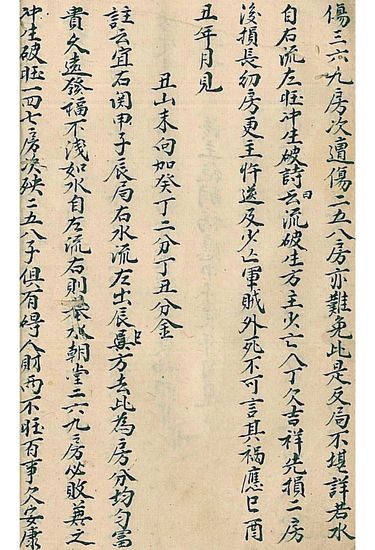 傷三六九房次遭傷二五八房亦難免此是反局不堪詳若水
自右流左旺冲生破詩曰云流破生方主少亡人丁欠吉祥先損二房
後損長幼房更主忤逆及少亡軍賊外死不可言其禍應巳酉
丑年月見
丑山未向加癸丁二分丁丑分金
註云宜右関甲子辰局右水流左出辰巽巳方去此為房分均勻富
貴久遠發福不浅如水自左流右則水朝堂二六九房必敗兼之
冲生破旺一四七房次殃二五八子俱有碍人財両不旺百事欠安康